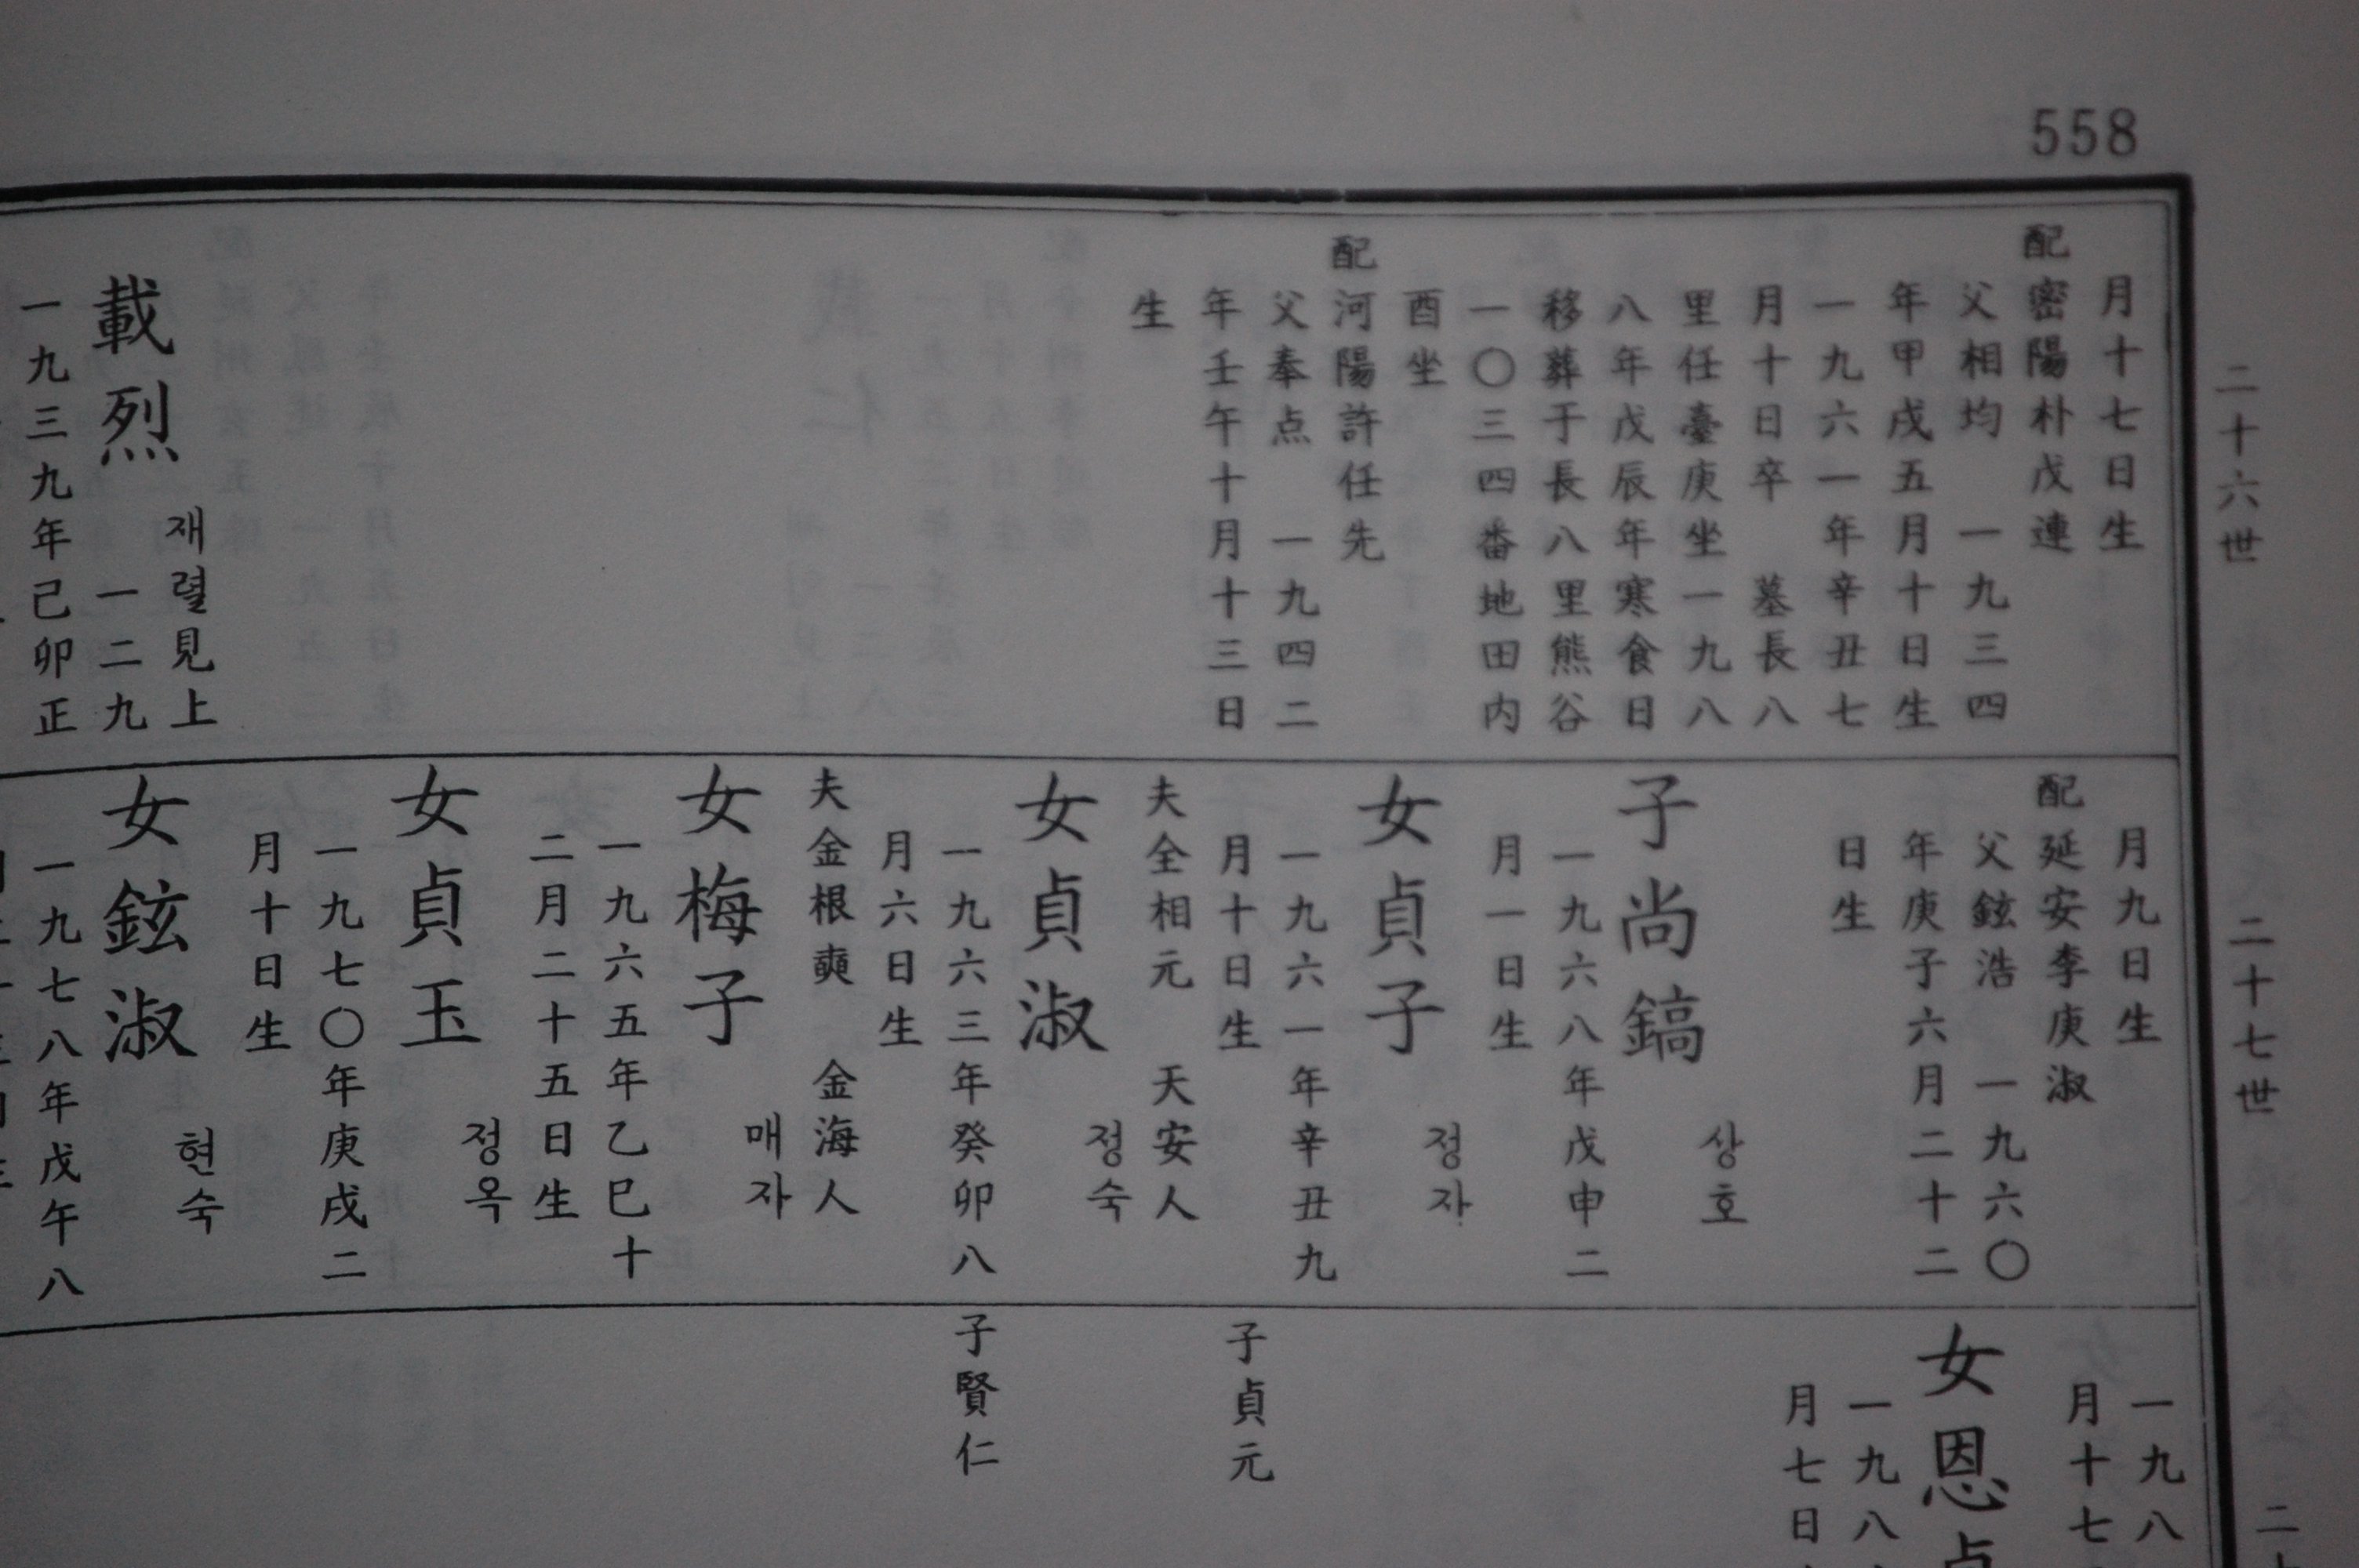 558
二十六世
月十七日生
配密陽朴戊連
父相均 一九三四
年甲戌五月十日生
一九六一年辛丑七
月十日卒 墓長八
里任臺庚坐一九八
八年戊辰年寒食日
移葬于長八里熊谷
一〇三四番地田内
酉坐
配河陽許任先
父奉点 一九四二
年壬午十月十三日
生
載烈 재렬見上
一二九
一九三九年己卯正
二十七世
月九日生
配延安李庚淑
父鉉浩 一九六〇
年庚子六月二十二
日生
子尚鎬 상호
一九六八年戊申二
月一日生
女貞子 정자
一九六一年辛丑九
月十日生
夫全相元 天安人
女貞淑 정숙
一九六三年癸卯八
月六日生
夫金根奭 金海人
女梅子 매자
一九六五年乙巳十
二月二十五日生
女貞玉 정옥
一九七〇年庚戌二
月十日生
女鉉淑 현숙
一九七八年戊午八
一九八
月十七
女恩
一九八
月七日
子貞元
子賢仁